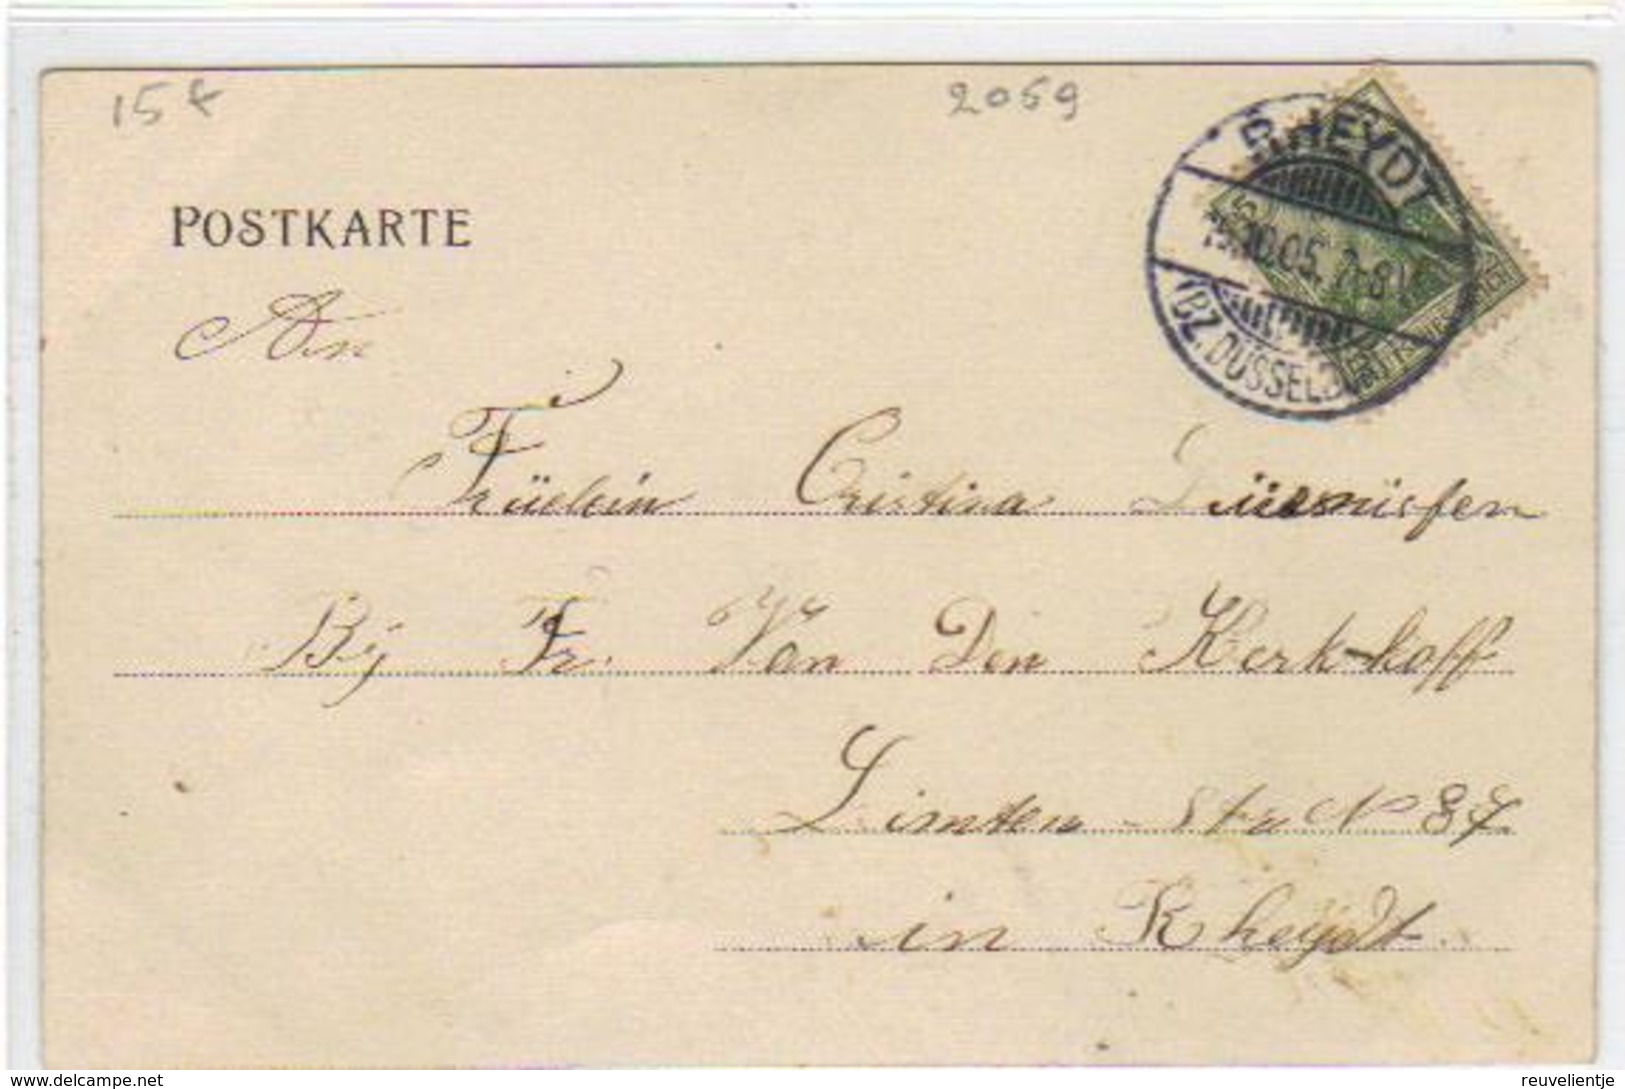 15 €
2069
RHEYDT
.10.05. 7-8V.
(BZ. DÜSSELD
POSTKARTE
An
Fräulein Cristina
Bij Fr. Van Den Kerk-hoff
Limten-Str N 87
in Rheydt.
www.delcampe.net
reuvelientje